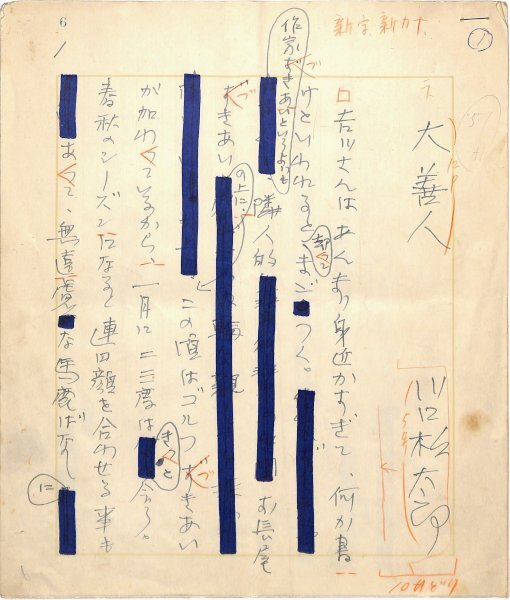 6
新字新カナ
大善人
川口松太郎
吉川さんはあんまり身近かすぎて、何か書
けといわれると、却ってまごつく。
作家づきあいというよりも隣人的お長屋
づきあいの上に、
この頃はゴルフづきあい
が加わっているから、一月に二三度はきっと会う。
春秋のシーズンになると連日顔を合わせる事も
あって、無遠慮な馬鹿ばなしに